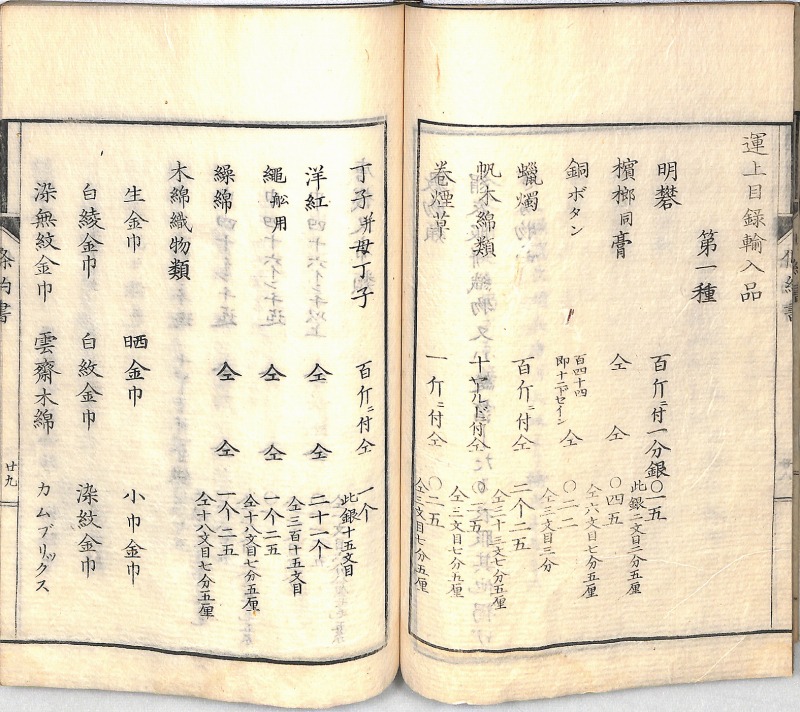 運上目録輸入品
第一種
明礬 百斤ニ付一分銀〇一五
此銀二文目二分五厘
檳榔同膏 仝 〇四五
仝六文目七分五厘
銅ボタン 百四十四即十二下セイン 仝 〇二二
仝三文目三分
蠟燭 百斤ニ付仝 二个二五
仝三十三文七分五厘
帆木綿類 十ヤルド付仝 〇二五
仝三文目七分五厘
卷煙草 一斤ニ付仝 〇二五
仝三文目七分五厘
丁子并母丁子 百斤ニ付仝 一个
此銀十五文目
洋紅 仝 仝 二十一个
仝三百十五文目
繩舩用 仝 仝 一个二五
仝十八文目七分五厘
繰綿 仝 仝 一个二五
仝十八文目七分五厘
木綿織物類
生金巾 晒金巾 小巾金巾
白綾金巾 白紋金巾 染紋金巾
染無紋金巾 雲齋木綿 カムブリックス
条約書
廿九